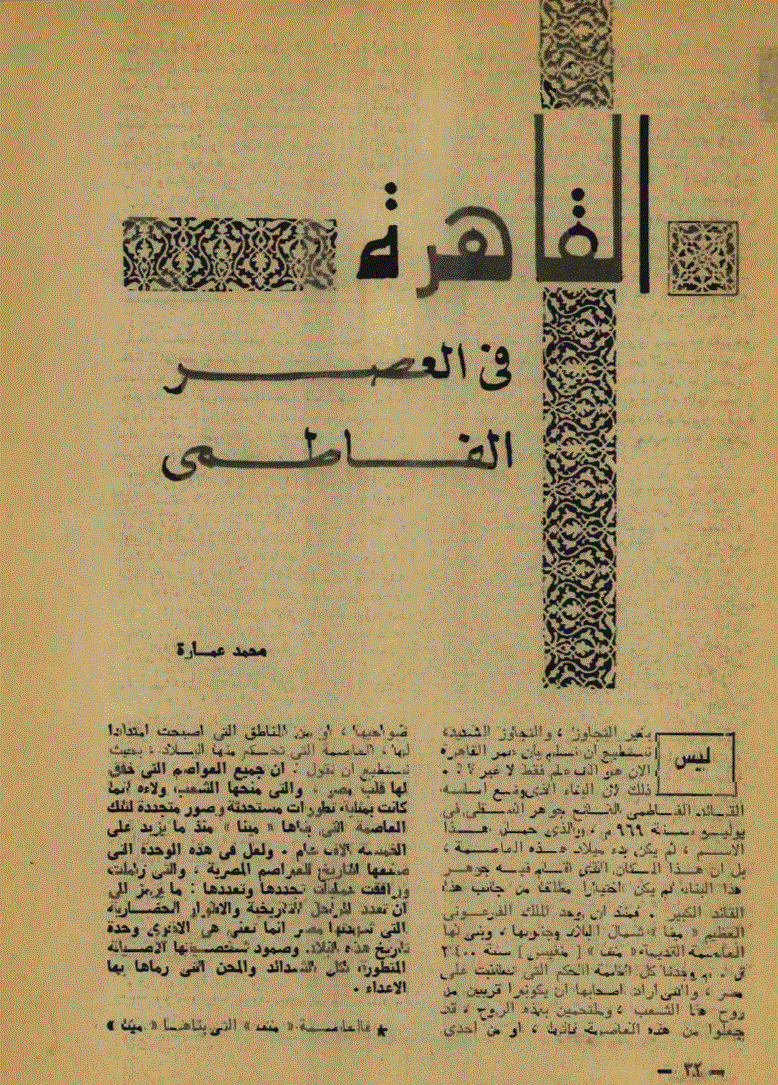 القاهرة
فى العصر
الفاطمى
محمد عمارة
ليس
بغير التجاوز ، والتجاوز الشديد
نستطيع ان نسلم بان عمر القاهرة
الان هو الف عام فقط لا غير ؟؟ .
ذلك لان البناء الذى وضع اساسه
القائد الفاطمى الفاتح جوهر الصقلى فى
يوليو سنة ٩٦٩ م ، والذى حمل هذا
الاسم ، لم يكن بدء ميلاد هذه العاصمة ،
بل ان هذا المكان الذى اقام فيه جوهر
هذا البناء لم يكن اختيارا مطلقا من جانب هذا
القائد الكبير . فمنذ ان وحد الملك الفرعونى
العظيم « مينا » شمال البلاد وجنوبها ، وبنى لها
العاصمة القديمة « منف » [ منفيس ] سنة ٣٤٠٠
ق . م وجدنا كل انظمة الحكم التى تعاقبت على
مصر ، والتى اراد اصحابها ان يكونوا قريبين من
روح هذا الشعب ، وملتحمين بهذه الروح ، قد
جعلوا من هذه العاصمة ذاتها ، او من احدى
ضواحيها ، او من المناطق التى اصبحت امتدادا
لها ، العاصمة التى تحكم منها البلاد ، بحيث
نستطيع ان نقول : ان جميع العواصم التى خفق
لها قلب مصر ، والتى منحها الشعب ولاءه انما
كانت بمثابة تطورات مستحدثة وصور متجددة لتلك
العاصمة التى بناها « مينا » منذ ما يزيد على
الخمسة الاف عام . ولعل فى هذه الوحدة التى
صنعها التاريخ للعواصم المصرية ، والتى زاملت
ورافقت عمليات تجددها وتعددها : ما يرمز الى
ان تعدد المراحل التاريخية والاطوار الحضارية
التى شهدتها مصر انما تعنى هى الاخرى وحدة
تاريخ هذه البلاد وصمود شخصيتها الاصيلة
المتطورة لكل الشدائد والمحن التى رماها بها
الاعداء .
* فالعاصمة « منف » التى بناها « مينا »
— ٣٢ —